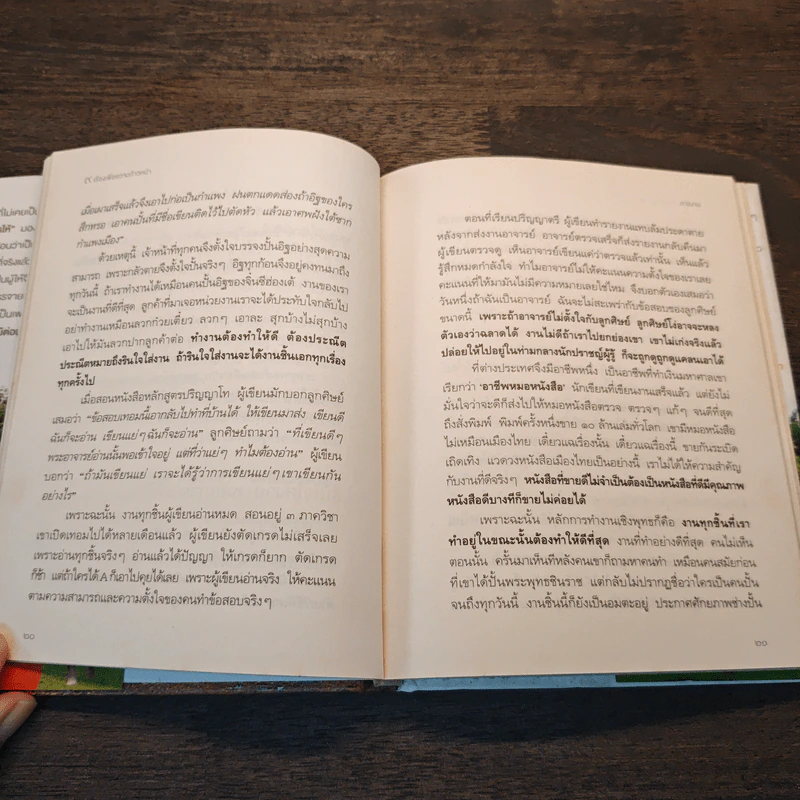 เมื่อเผาเสร็จแล้วจึงเอาไปก่อเป็นกำแพง ฝนตกแดดส่องถ้าอิฐของใคร
สึกหรอ เอาคนปั้นที่มีชื่อเขียนติดไว้ไปตัดหัว แล้วเอาศพฝังใต้ซาก
กำแพงเมือง"
ด้วยเหตุนี้ เจ้าหน้าที่ทุกคนจึงตั้งใจบรรจงปั้นอิฐอย่างสุดความ
สามารถ เพราะกลัวตายจึงตั้งใจปั้นจริงๆ อิฐทุกก้อนจึงอยู่คงทนมาถึง
ทุกวันนี้ ถ้าเราทำงานได้เหมือนคนปั้นอิฐของจิ๋นซีฮ่องเต้ งานของเรา
จะเป็นงานที่ดีที่สุด ลูกค้าที่มาเจอหน่วยงานเราจะได้ประทับใจกลับไป
อย่าทำงานเหมือนลวกก๋วยเตี๋ยว ลวกๆ เอาละ สุกบ้างไม่สุกบ้าง
เอาไปให้มันลวกปากลูกค้าต่อ ทำงานต้องทำให้ดี ต้องประณีต
ประณีตหมายถึงรินใจใส่งาน ถ้ารินใจใส่งานจะได้งานชิ้นเอกทุกเรื่อง
ทุกครั้งไป
เมื่อสอนหนังสือหลักสูตรปริญญาโท ผู้เขียนมักบอกลูกศิษย์
เสมอว่า "ข้อสอบเทอมนี้อากลับไปทำที่บ้านได้ ให้เขียนมาส่ง เขียนดี
ฉันก็จะอ่าน เขียนแย่ๆ ฉันก็จะอ่าน" ลูกศิษย์ถามว่า "ที่เขียนดีๆ
พระอาจารย์อ่านนั้นพอเข้าใจอยู่ แต่ที่ว่าแย่ๆ ทำไมต้องอ่าน" ผู้เขียน
บอกว่า "ถ้ามันเขียนแย่ เราจะได้รู้ว่าการเขียนแย่ๆ เขาเขียนกัน
อย่างไร"
เพราะฉะนั้น งานทุกชิ้นผู้เขียนอ่านหมด สอนอยู่ ๓ ภาควิชา
เขาเปิดเทอมไปได้หลายเดือนแล้ว ผู้เขียนยังตัดเกรดไม่เสร็จเลย
เพราะอ่านทุกชิ้นจริงๆ อ่านแล้วได้ปัญญา ให้เกรดก็ยาก ตัดเกรด
ก็ช้า แต่ถ้าใครได้ A ก็เอาไปคุยได้เลย เพราะผู้เขียนอ่านจริง ให้คะแนน
ตามความสามารถและความตั้งใจของคนทำข้อสอบจริงๆ
๒๐
ตอนที่เรียนปริญญาตรี ผู้เขียนทำรายงานแทบล้มประดาตาย
หลังจากส่งงานอาจารย์ อาจารย์ตรวจเสร็จก็ส่งรายงานกลับคืนมา
ผู้เขียนตรวจดู เห็นอาจารย์เขียนแค่ว่าตรวจแล้วเท่านั้น เห็นแล้ว
รู้สึกหมดกำลังใจ ทำไมอาจารย์ไม่ให้คะแนนความตั้งใจของเราเลย
คะแนนที่ให้มามันไม่มีความหมายเลยใช่ไหม จึงบอกตัวเองเสมอว่า
วันหนึ่งถ้าฉันเป็นอาจารย์ ฉันจะไม่สะเพร่ากับข้อสอบของลูกศิษย์
ขนาดนี้ เพราะถ้าอาจารย์ไม่ตั้งใจกับลูกศิษย์ ลูกศิษย์โง่อาจจะหลง
ตัวเองว่าฉลาดได้ งานไม่ดีถ้าเราไปยกย่องเขา เขาไม่เก่งจริงแล้ว
ปล่อยให้ไปอยู่ในท่ามกลางนักปราชญ์ผู้รู้ ก็จะถูกดูถูกดูแคลนเอาได้
ที่ต่างประเทศจึงมีอาชีพหนึ่ง เป็นอาชีพที่ทำเงินมหาศาลเขา
เรียกว่า 'อาชีพหมอหนังสือ' นักเขียนที่เขียนงานเสร็จแล้ว แต่ยังไม่
มั่นใจว่าจะดีก็ส่งไปให้หมอหนังสือตรวจ ตรวจๆ แก้ๆ จนดีที่สุด
ถึงสั่งพิมพ์ พิมพ์ครั้งหนึ่งขาย ๑๐ ล้านเล่มทั่วโลก เขามีหมอหนังสือ
ไม่เหมือนเมืองไทย เดี๋ยวแฉเรื่องนั้น เดี๋ยวแฉเรื่องนี้ ขายกันระเบิด
เถิดเทิง แวดวงหนังสือเมืองไทยเป็นอย่างนี้ เราไม่ได้ให้ความสำคัญ
กับงานที่ดีจริงๆ หนังสือที่ขายดีไม่จำเป็นต้องเป็นหนังสือที่ดีมีคุณภาพ
หนังสือดีบางทีก็ขายไม่ค่อยได้
เพราะฉะนั้น หลักการทำงานเชิงพุทธก็คือ งานทุกชิ้นที่เรา
ทำอยู่ในขณะนั้นต้องทำให้ดีที่สุด งานที่ทำอย่างดีที่สุด คนไม่เห็น
ตอนนั้น ครั้นมาเห็นทีหลังคนเขาก็ถามหาคนทำ เหมือนคนสมัยก่อน
ที่เขาได้ปั้นพระพุทธชินราช แต่กลับไม่ปรากฏชื่อว่าใครเป็นคนปั้น
จนถึงทุกวันนี้ งานชิ้นนี้ก็ยังเป็นอมตะอยู่ ประกาศศักยภาพช่างปั้น
๒๑